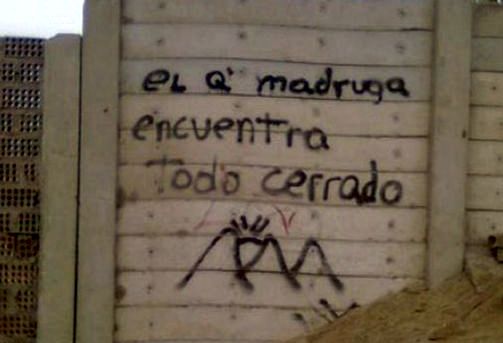 eL Q' madruga
encuentra
Todo cerrado